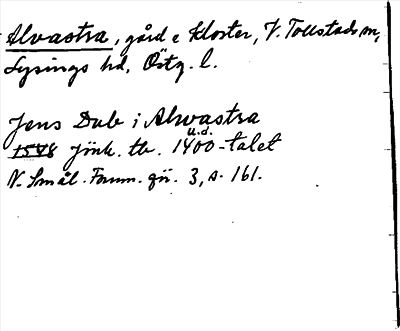 Alvastra, gård e kloster, V. Tollstads sn,
Lysings hd, Östg. l.
Jens Dub i Alvastra
1548 Jönk. tb. 1400-talet
u.d.
N. Smål. Fornm. för. 3, s. 161.